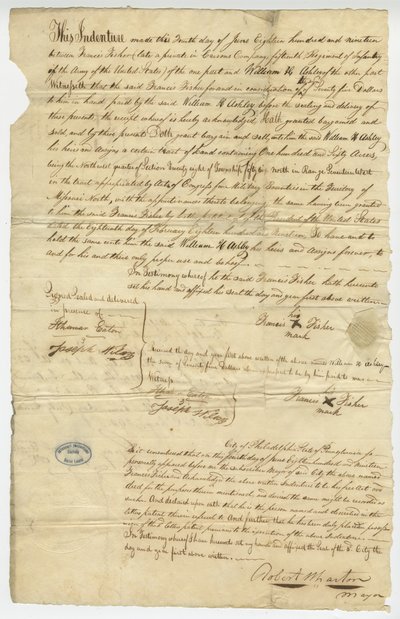 This Indenture made this Fourth day of June Eighteen hundred and nineteen
between Francis Fisher (late a private in Carsons Company, fifteenth Regiment of Infantry
of the Army of the United States) of the one part and William H Ashley of the other part
Witnesseth that the said Francis Fisher for and in consideration of Twenty five Dollars
to him in hand paid by the said William H Ashley before the sealing and delivery of
these presents the receipt whereof is hereby acknowledged Hath granted bargained and
sold, and by these presents Doth grant bargain and sell unto him the said William H Ashley
his heirs and assigns a certain tract of Land containing One hundred and Sixty Acres,
being the Northwest quarter of Section Twenty eight of Township Fifty six north in Range West
in the tract appropriated by acts of Congress for Military Bounties in the Territory of
Missouri North, with the appurtenances thereto belonging the same having been granted
to him the said Francis Fisher by of the United States
dated the eighteenth day of February Eighteen hundred and To have and to
hold the same unto him the said William H Ashley his heirs and assigns forever, to
and for his and their only proper use and behoof
In Testimony whereof he the said Francis Fisher hath hereunto
set his hand and affixed his seal the day and year first above written
Signed Sealed and delivered
in presence of
Eaton
Joseph Wilson
his
Francis X Fisher
mark
Received the day and year first above written of the above named William H Ashley
the sum of Twenty five Dollars
Witness
Eaton
Joseph Wilson
Francis X Fisher
mark
City of Philadelphia State of Pennsylvania ss
Be it remembered that on the fourth day of June Eighteen hundred and nineteen
personally appeared before me the subscriber Mayor of said City the above named
Francis Fisher and acknowledged the above written Indenture to be his act and
deed for the purposes therein mentioned and desired the same might be recorded as
such And declared upon oath that he is the person named and described in the
letters patent therein referred to And further that he has been duly placed in possession
of the said letters patent previous to the execution of the above Indenture
In Testimony whereof I have hereunto set my hand and affixed the Seal of the City the
day and year first above written
Robert Wharton
Mayor